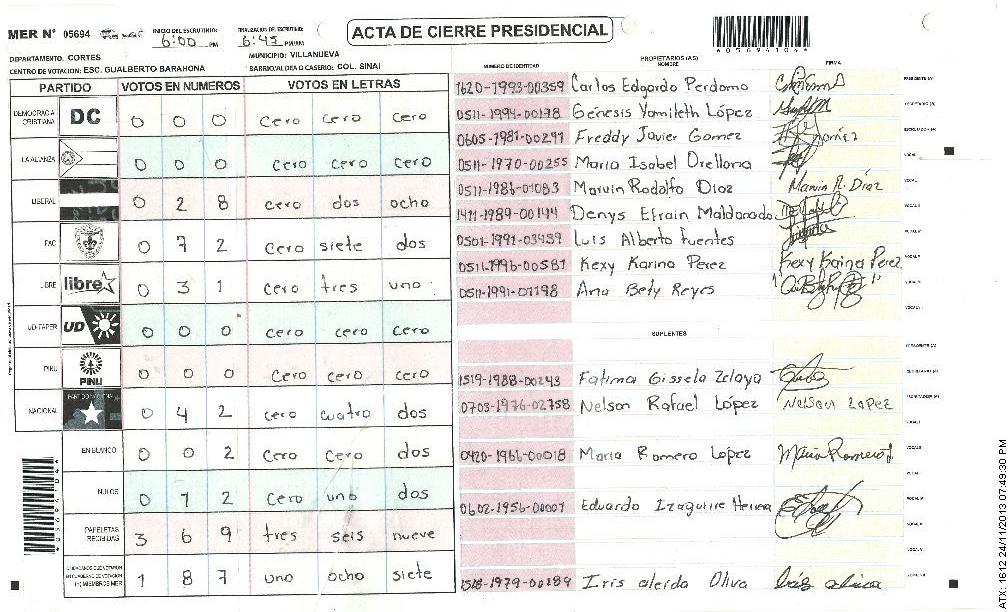 MER N° 05694 INICIO DEL ESCRUTINIO: 6:00 PM FINALIZACION DEL ESCRUTINIO: 6:45 PM/AM ACTA DE CIERRE PRESIDENCIAL
DEPARTAMENTO: CORTES MUNICIPIO: VILLANUEVA
CENTRO DE VOTACION: ESC. GUALBERTO BARAHONA BARRIO/ALDEA O CASERIO: COL. SINAI
PARTIDO VOTOS EN NUMEROS VOTOS EN LETRAS
DEMOCRACIA CRISTIANA DC 0 0 0 cero cero cero
LA ALIANZA 0 0 0 cero cero cero
LIBERAL 0 2 8 cero dos ocho
PAC 0 7 2 cero siete dos
LIBRE libre 0 3 1 cero tres uno
UD-FAPER UD 0 0 0 cero cero cero
PINU PINU 0 0 0 cero cero cero
NACIONAL 0 4 2 cero cuatro dos
EN BLANCO 0 0 2 cero cero dos
NULOS 0 1 2 cero uno dos
PAPELETAS RECIBIDAS 3 6 9 tres seis nueve
CIUDADANOS QUE VOTARON EN CUADERNO DE VOTACION (+) MIEMBROS MER 1 8 7 uno ocho siete
NÚMERO DE IDENTIDAD PROPIETARIOS (AS) NOMBRE FIRMA
1620-1993-00359 Carlos Edgardo Perdomo PRESIDENTE (A)
0511-1994-00198 Génesis Yamileth López SECRETARIO (A)
0605-1981-00291 Freddy Javier Gomez Gomez ESCRUTADOR (A)
0511-1970-00255 Maria Isabel Orellana VOCAL I
0511-1986-01083 Marvin Rodolfo Diaz Marvin R. Díaz VOCAL II
1411-1989-00144 Denys Efrain Maldonado VOCAL III
0501-1991-03459 Luis Alberto Fuentes VOCAL IV
0511-1996-00581 Kexy Karina Perez Kexy Karina Perez VOCAL V
0511-1991-01198 Ana Bety Reyes
SUPLENTES
PRESIDENTE (A)
1519-1988-00243 Fatima Gissela Zelaya SECRETARIO (A)
0703-1976-02758 Nelson Rafael López Nelson Lopez ESCRUTADOR (A)
VOCAL I
0420-1966-00018 Maria Romero Lopez Maria Romero VOCAL II
VOCAL III
0602-1956-00007 Eduardo Izaguirre Herrera VOCAL IV
1518-1979-00189 Iris aleida Oliva
ATX: 1612 24/11/2013 07:49:30 PM